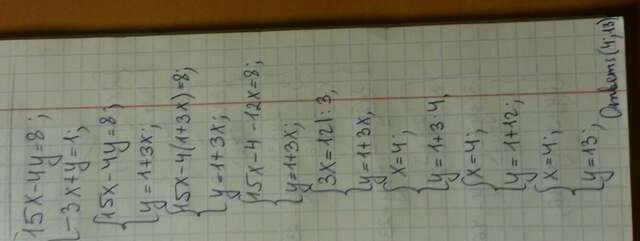 15x-4y=8;
-3x+y=1;
15x-4y=8;
y=1+3x;
15x-4(1+3x)=8;
y=1+3x;
15x-4-12x=8;
y=1+3x;
3x=12|:3,
y=1+3x,
x=4;
y=1+3·4,
x=4;
y=1+12;
x=4;
y=13;
Ответ: (4;13)